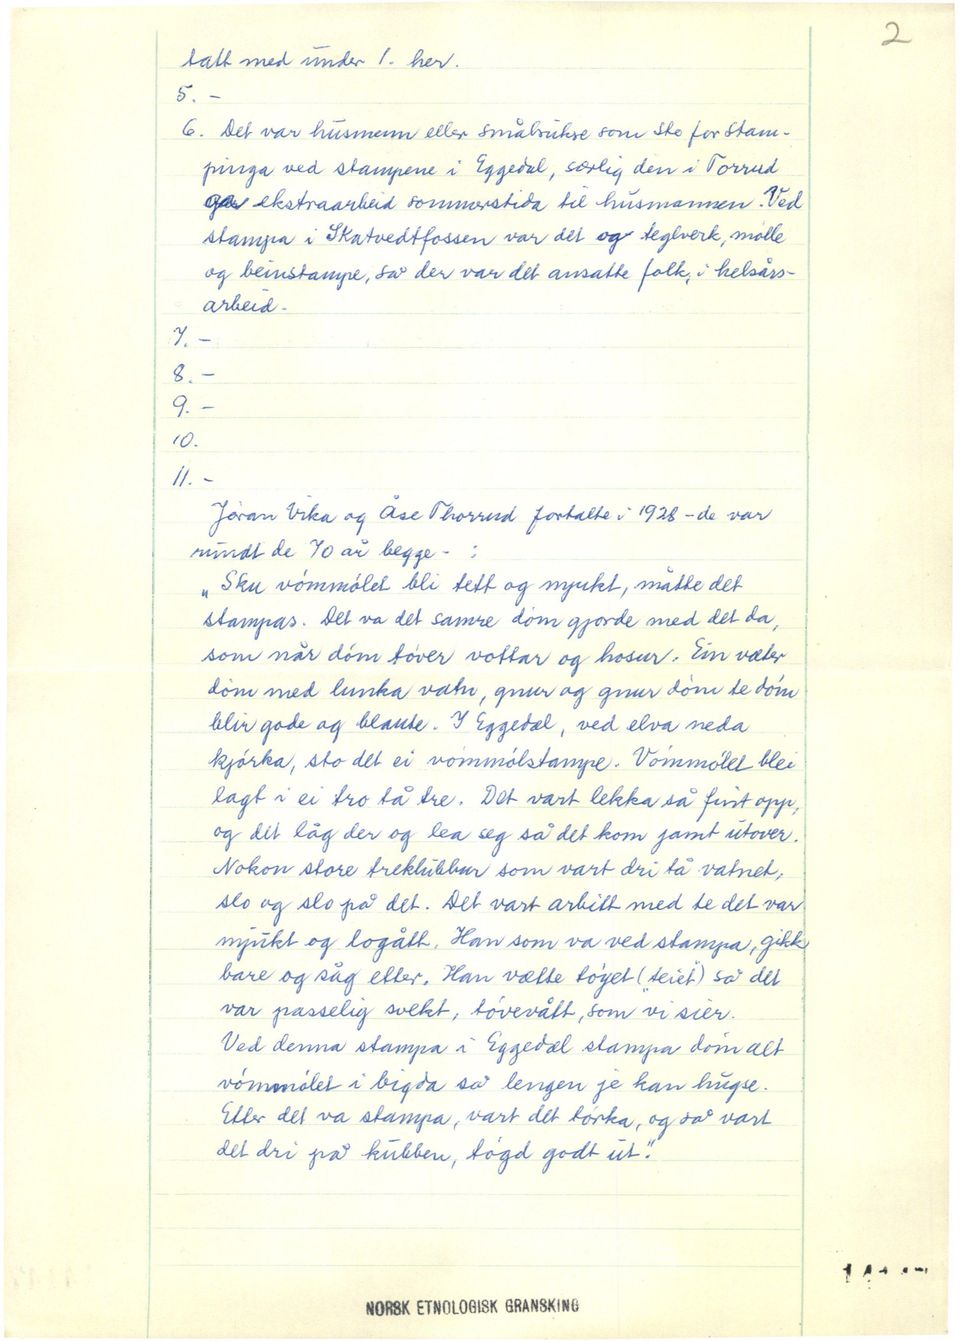 2
tatt med under 1. her.
5. -
6. Det var husmenn eller småbrukse som sto for stam-
pinga ved stampene i Eggedal, særlig den i Torrud
ga ekstraarbeid sommerstida til husmannen. Ved
stampa i Skatvedtfossen var det og teglverk, mølle
og beinstampe, så der var det ansatte folk, i helsårs-
arbeid.
7. -
8. -
9. -
10.
11. -
Jøran Vika og Åse Thorrud fortalte i 1928 - de var
rundt de 70 år begge - :
„Sku vómmólet bli tett og mjukt, måtte det
stampas. Det va det samre dóm gjorde med det da,
som når dóm tóver vottar og hosur. Ein væter
dóm med lunka vatn, gnur og gnur dóm te dóm
blir gode og blaute. I Eggedæl, ved elva neda
kjórka, sto det ei vómmólstampe. Vómmólet blei
lagt i ei tro tå tre. Det vart lekka så fint opp,
og dit låg der og lea seg så det kom jamt utover.
Nokon store treklubbur som vart dri tå vatnet,
slo og slo på det. Det vart arbitt med te det var
mjukt og logått. Han som va ved stampa, gikk
bare og såg etter. Han vætte tóyet („teiet") så det
var passelig svekt, tóvevått, som vi sier.
Ved denna stampa i Eggedæl stampa dóm alt
vómmólet i bigda så lengen je kan hugse.
Etter det va stampa, vart det tórka, og så vart
det dri på kubben, tógd godt ut."
NORSK ETNOLOGISK GRANSKING